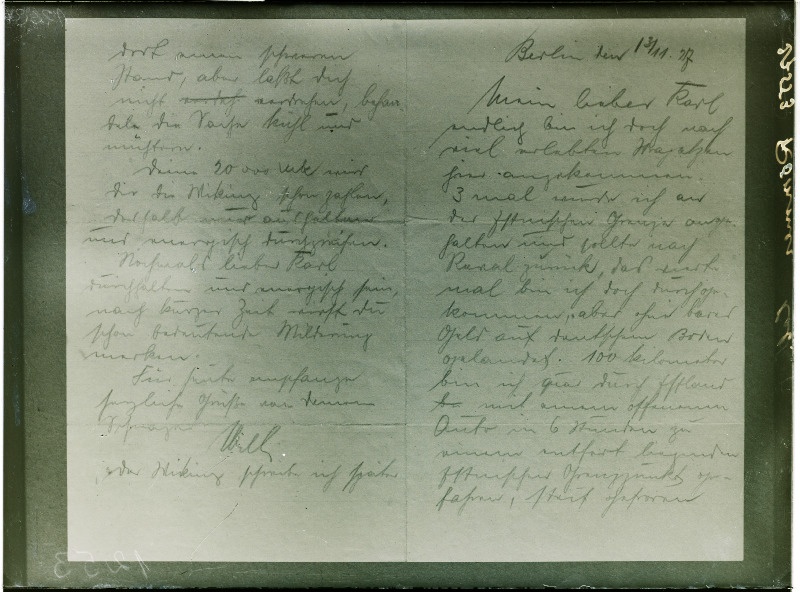 Berlin den 13/11. 27
Mein lieber Karl
endlich bin ich doch nach
viel erlebten Strapazen
hier angekommen.
3 mal wurde ich an
der Estnischen Grenze ange-
halten und sollte nach
Reval zurück, das vierte
mal bin ich doch durchge-
kommen, aber ohne bares
Geld auf deutschem Boden
gelandet. 100 Kilometer
bin ich quer durch Estland
mit einem offenen
Auto in 6 Stunden zu
einem entfernt liegenden
Estnischen Grenzpunkt ge-
fahren, steif gefroren
dort einen schweren
Stand, aber laßt dich
nicht verdrehen, behan-
dele die Sache kühl und
nüchtern.
Deine 20 000 Mk wird
dir die Wiking schon zahlen,
deshalb nur aushalten
und energisch durchgreifen.
Nochmals lieber Karl
durchhalten und energisch sein,
nach kurzer Zeit wirst du
schon bedeutende Milderung
merken.
Für heute empfange
herzliche Grüße von deinem
Schwager
Willi
der Wiking schreibe ich später
1253
1253